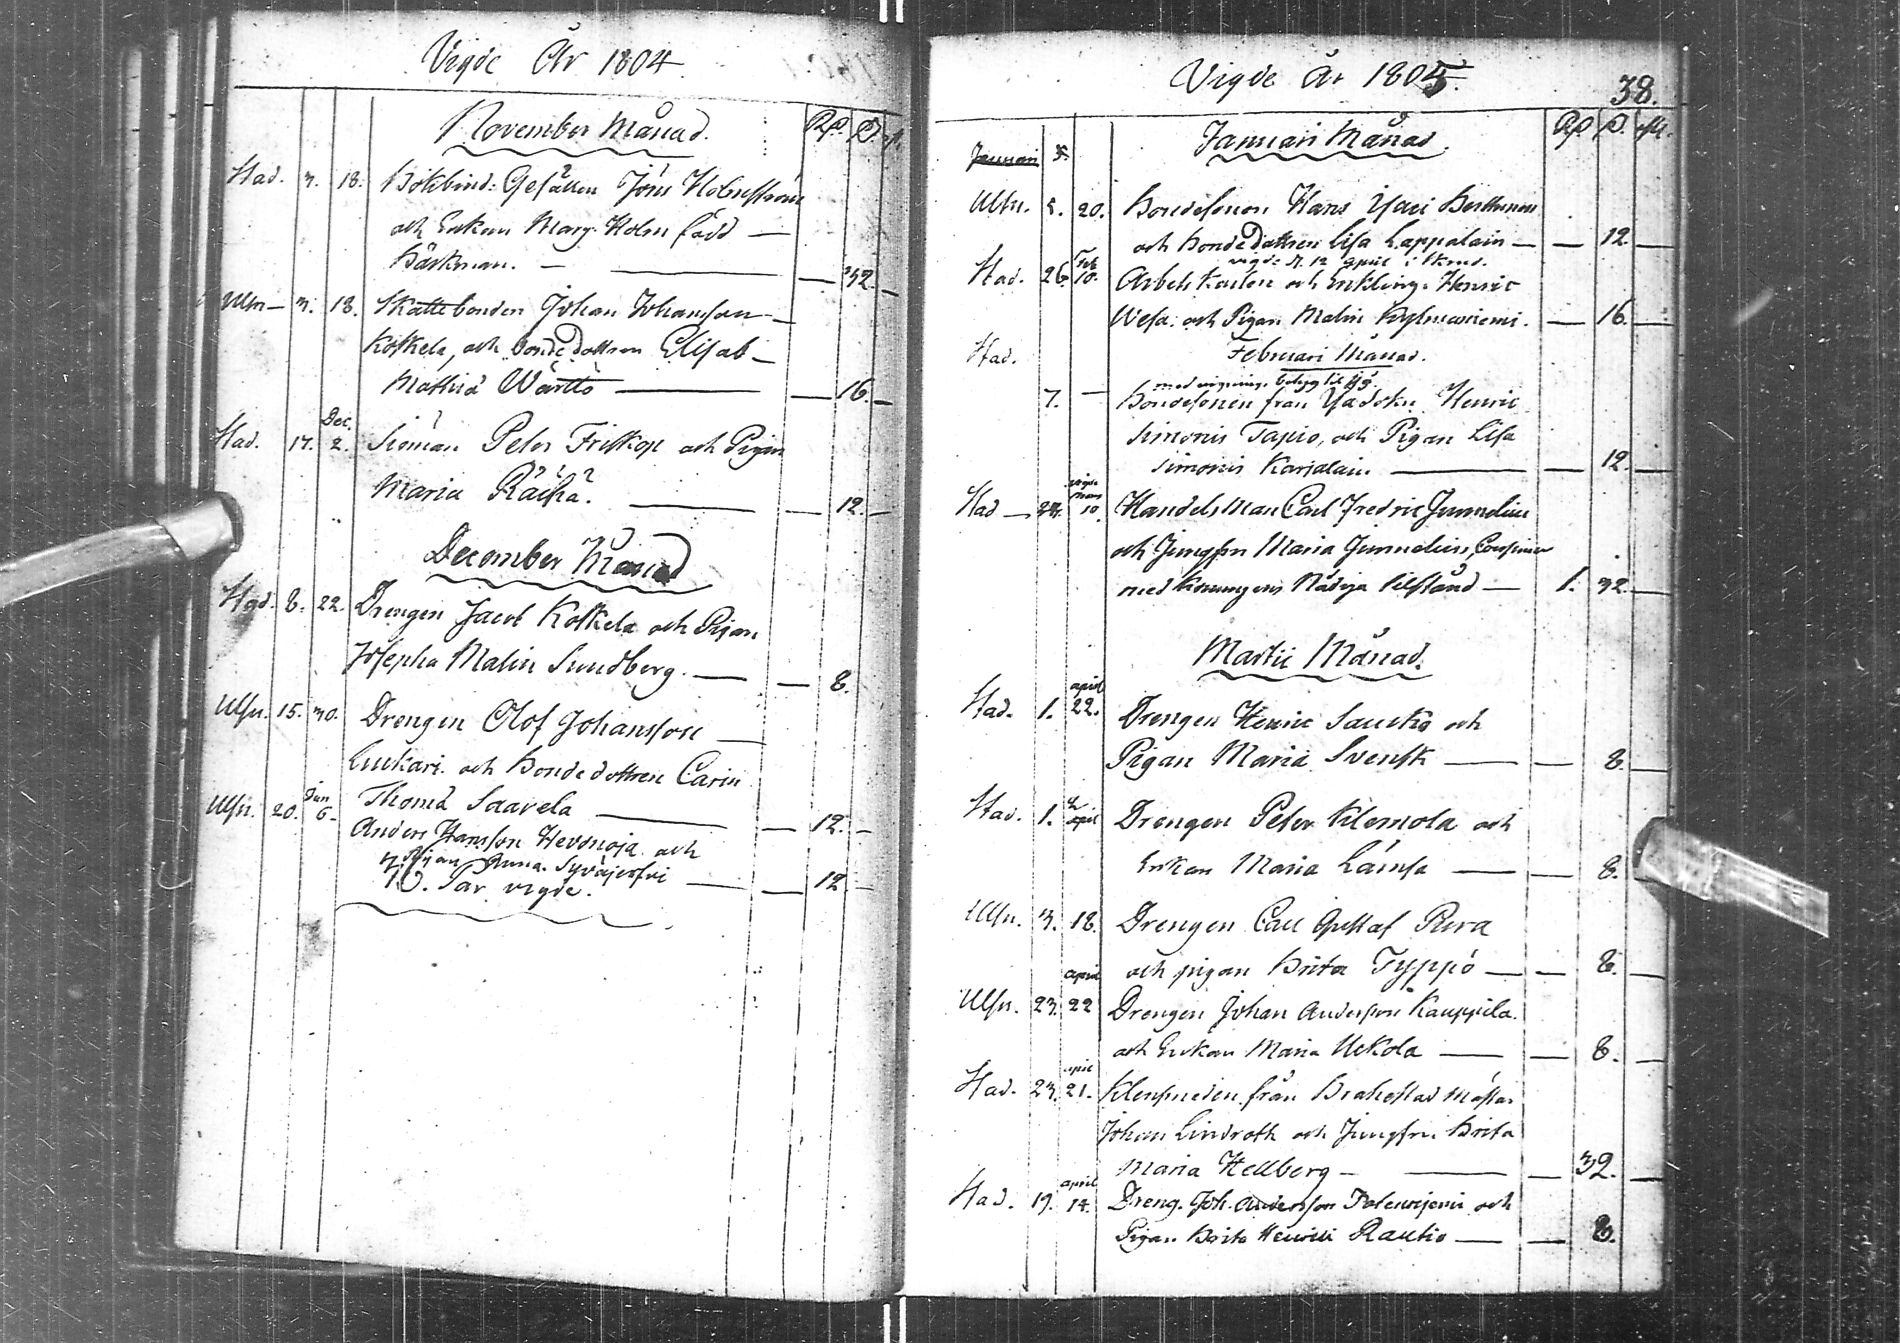 Vigde År 1804
November Månad. Rd. S.
Stad. 3. 18. Bokbind: Gesällen Jöns Holmström
och Enkan Marg. Holm född —
Bäckman. — — 32. —
Ulfn — 3. 18. Skattebonden Johan Johansson —
Koskela, och bondedottren Elisab —
Mathsd Warttö — — 16. —
Dec.
Stad. 17. 2. Sjöman Peter Friskop och Pigan
Maria Räihä. — — 12. —
December Månad
Stad. 8. 22. Drengen Jacob Koskela och Pigan
Josepha Malin Sundberg. — — 8.
Ulfn. 15. 30. Drengen Olof Johansson —
och Bondedottren Carin
Thomd Saarela — — 12. —
Jan
Ulfn. 20. 6. Anders Hansson och
Pigan Anna — — 12 —
70. Par vigde.
Vigde År 1805.
38.
Januari Månad. Rd S.
Januari 5.
Ulfn. 5. 20. Bondesonen Hans
och bondedottren Lisa Lappalain — — 12 —
vigde d. 12 april i
Feb
Stad. 26 10. Arbets karlen och Enkling. Henric
Wesa. och Pigan Malin — 16. —
Stad. Februari Månad.
7. — Bondesonen från Henric
Simonis Tapio, och Pigan Lisa
Simonis Karjalain. — — 12. —
mars
Stad — 10. Handelsman Carl Fredric Junnelius
och Jungfru Maria Junnelius,
med Konungens Nådiga tilstånd — 1. 32. —
Martii Månad.
april
Stad. 1. 22. Drengen Henric Saucko och
Pigan Maria Svensk — — 8. —
Stad. 1. april Drengen Peter Klemola och
Enkan Maria Lämsa — — 8. —
Ulfn. 3. 18. Drengen Carl Gustaf Rura
och pigan Brita Typpö — — 8. —
april
Ulfn. 23. 22 Drengen Johan Andersson Kauppila.
och Enkan Maria Uckola — — 8. —
april
Stad. 23. 21. Klensmeden från Brahestad mästar
Johan Lindroth och Jungfru Brita
Maria Hellberg — — 32. —
april
Stad. 19. 14. Dreng. Joh. Andersson och
Pigan Brita Henrici Rautio — — 8.